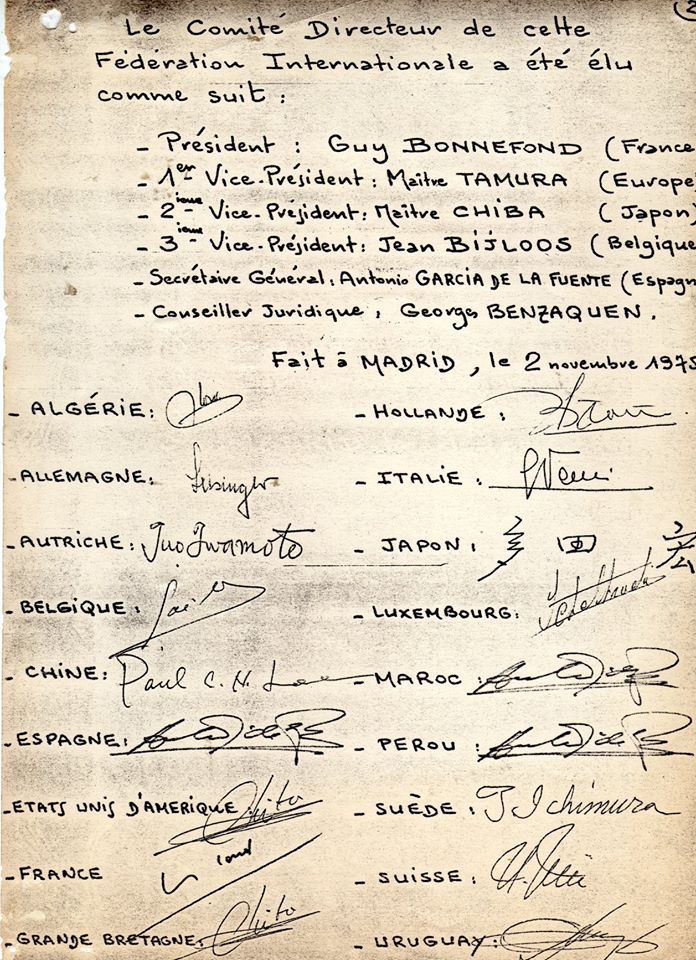 (2
Le Comité Directeur de cette
Fédération Internationale a été élu
comme suit :
- Président : Guy BONNEFOND (France
- 1er Vice-Président : Maître TAMURA (Europe
- 2ième Vice-Président : Maître CHIBA (Japon)
- 3ième Vice-Président : Jean BIJLOOS (Belgique
- Secrétaire Général : Antonio GARCIA DE LA FUENTE (Espagn
- Conseiller Juridique, Georges BENZAQUEN.
Fait à MADRID, le 2 novembre 1975
- ALGÉRIE : - HOLLANDE :
- ALLEMAGNE : - ITALIE :
- AUTRICHE : Juo Iwamoto - JAPON :
- BELGIQUE : - LUXEMBOURG :
- CHINE : Paul C. H. Lee - MAROC :
- ESPAGNE : - PEROU :
- ETATS UNIS D'AMERIQUE : Chito - SUÈDE : T Ichimura
- FRANCE - SUISSE :
- GRANDE BRETAGNE : Chito - URUGUAY :